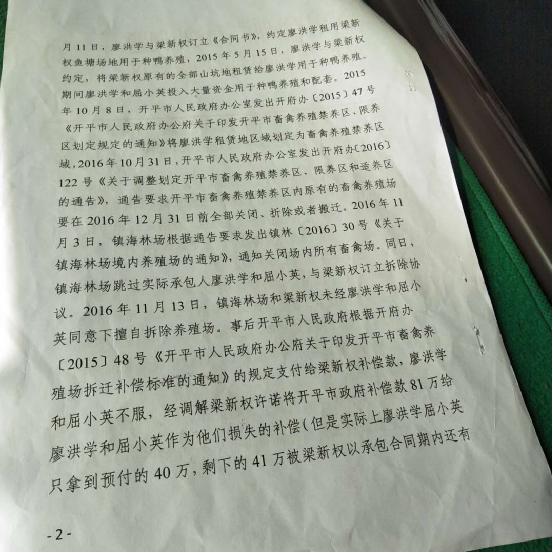 月11日，廖洪学与梁新权订立《合同书》，约定廖洪学租用梁新
权鱼塘场地用于种鸭养殖，2015年5月15日，廖洪学与梁新权
约定，将梁新权原有的全部山坑地租赁给廖洪学用于种鸭养殖。
期间廖洪学和屈小英投入大量资金用于种鸭养殖和配套。2015
年10月8日，开平市人民政府办公室发出开府办〔2015〕47号
《开平市人民政府办公府关于印发开平市畜禽养殖禁养区、限养
区划定规定的通知》将廖洪学租赁地区域划定为畜禽养殖禁养区
域，2016年10月31日，开平市人民政府办公室发出开府办〔2016〕
122号《关于调整划定开平市畜禽养殖禁养区、限养区和适养区
的通告》，通告要求开平市畜禽养殖禁养区内原有的畜禽养殖场
要在2016年12月31日前全部关闭、拆除或者搬迁。2016年11
月3日。镇海林场根据通告要求发出镇林〔2016〕30号《关于
镇海林场境内养殖场的通知》，通知关闭场内所有畜禽场。同日，
镇海林场跳过实际承包人廖洪学和屈小英，与梁新权订立拆除协
议。2016年11月13日，镇海林场和梁新权未经廖洪学和屈小
英同意下擅自拆除养殖场。事后开平市人民政府根据开府办
〔2015〕48号《开平市人民政府办公府关于印发开平市畜禽养
殖场拆迁补偿标准的通知》的规定支付给梁新权补偿款，廖洪学
和屈小英不服，经调解梁新权许诺将开平市政府补偿款81万给
廖洪学和屈小英作为他们损失的补偿（但是实际上廖洪学屈小英
只拿到预付的40万，剩下的41万被梁新权以承包合同期内还有
-2-